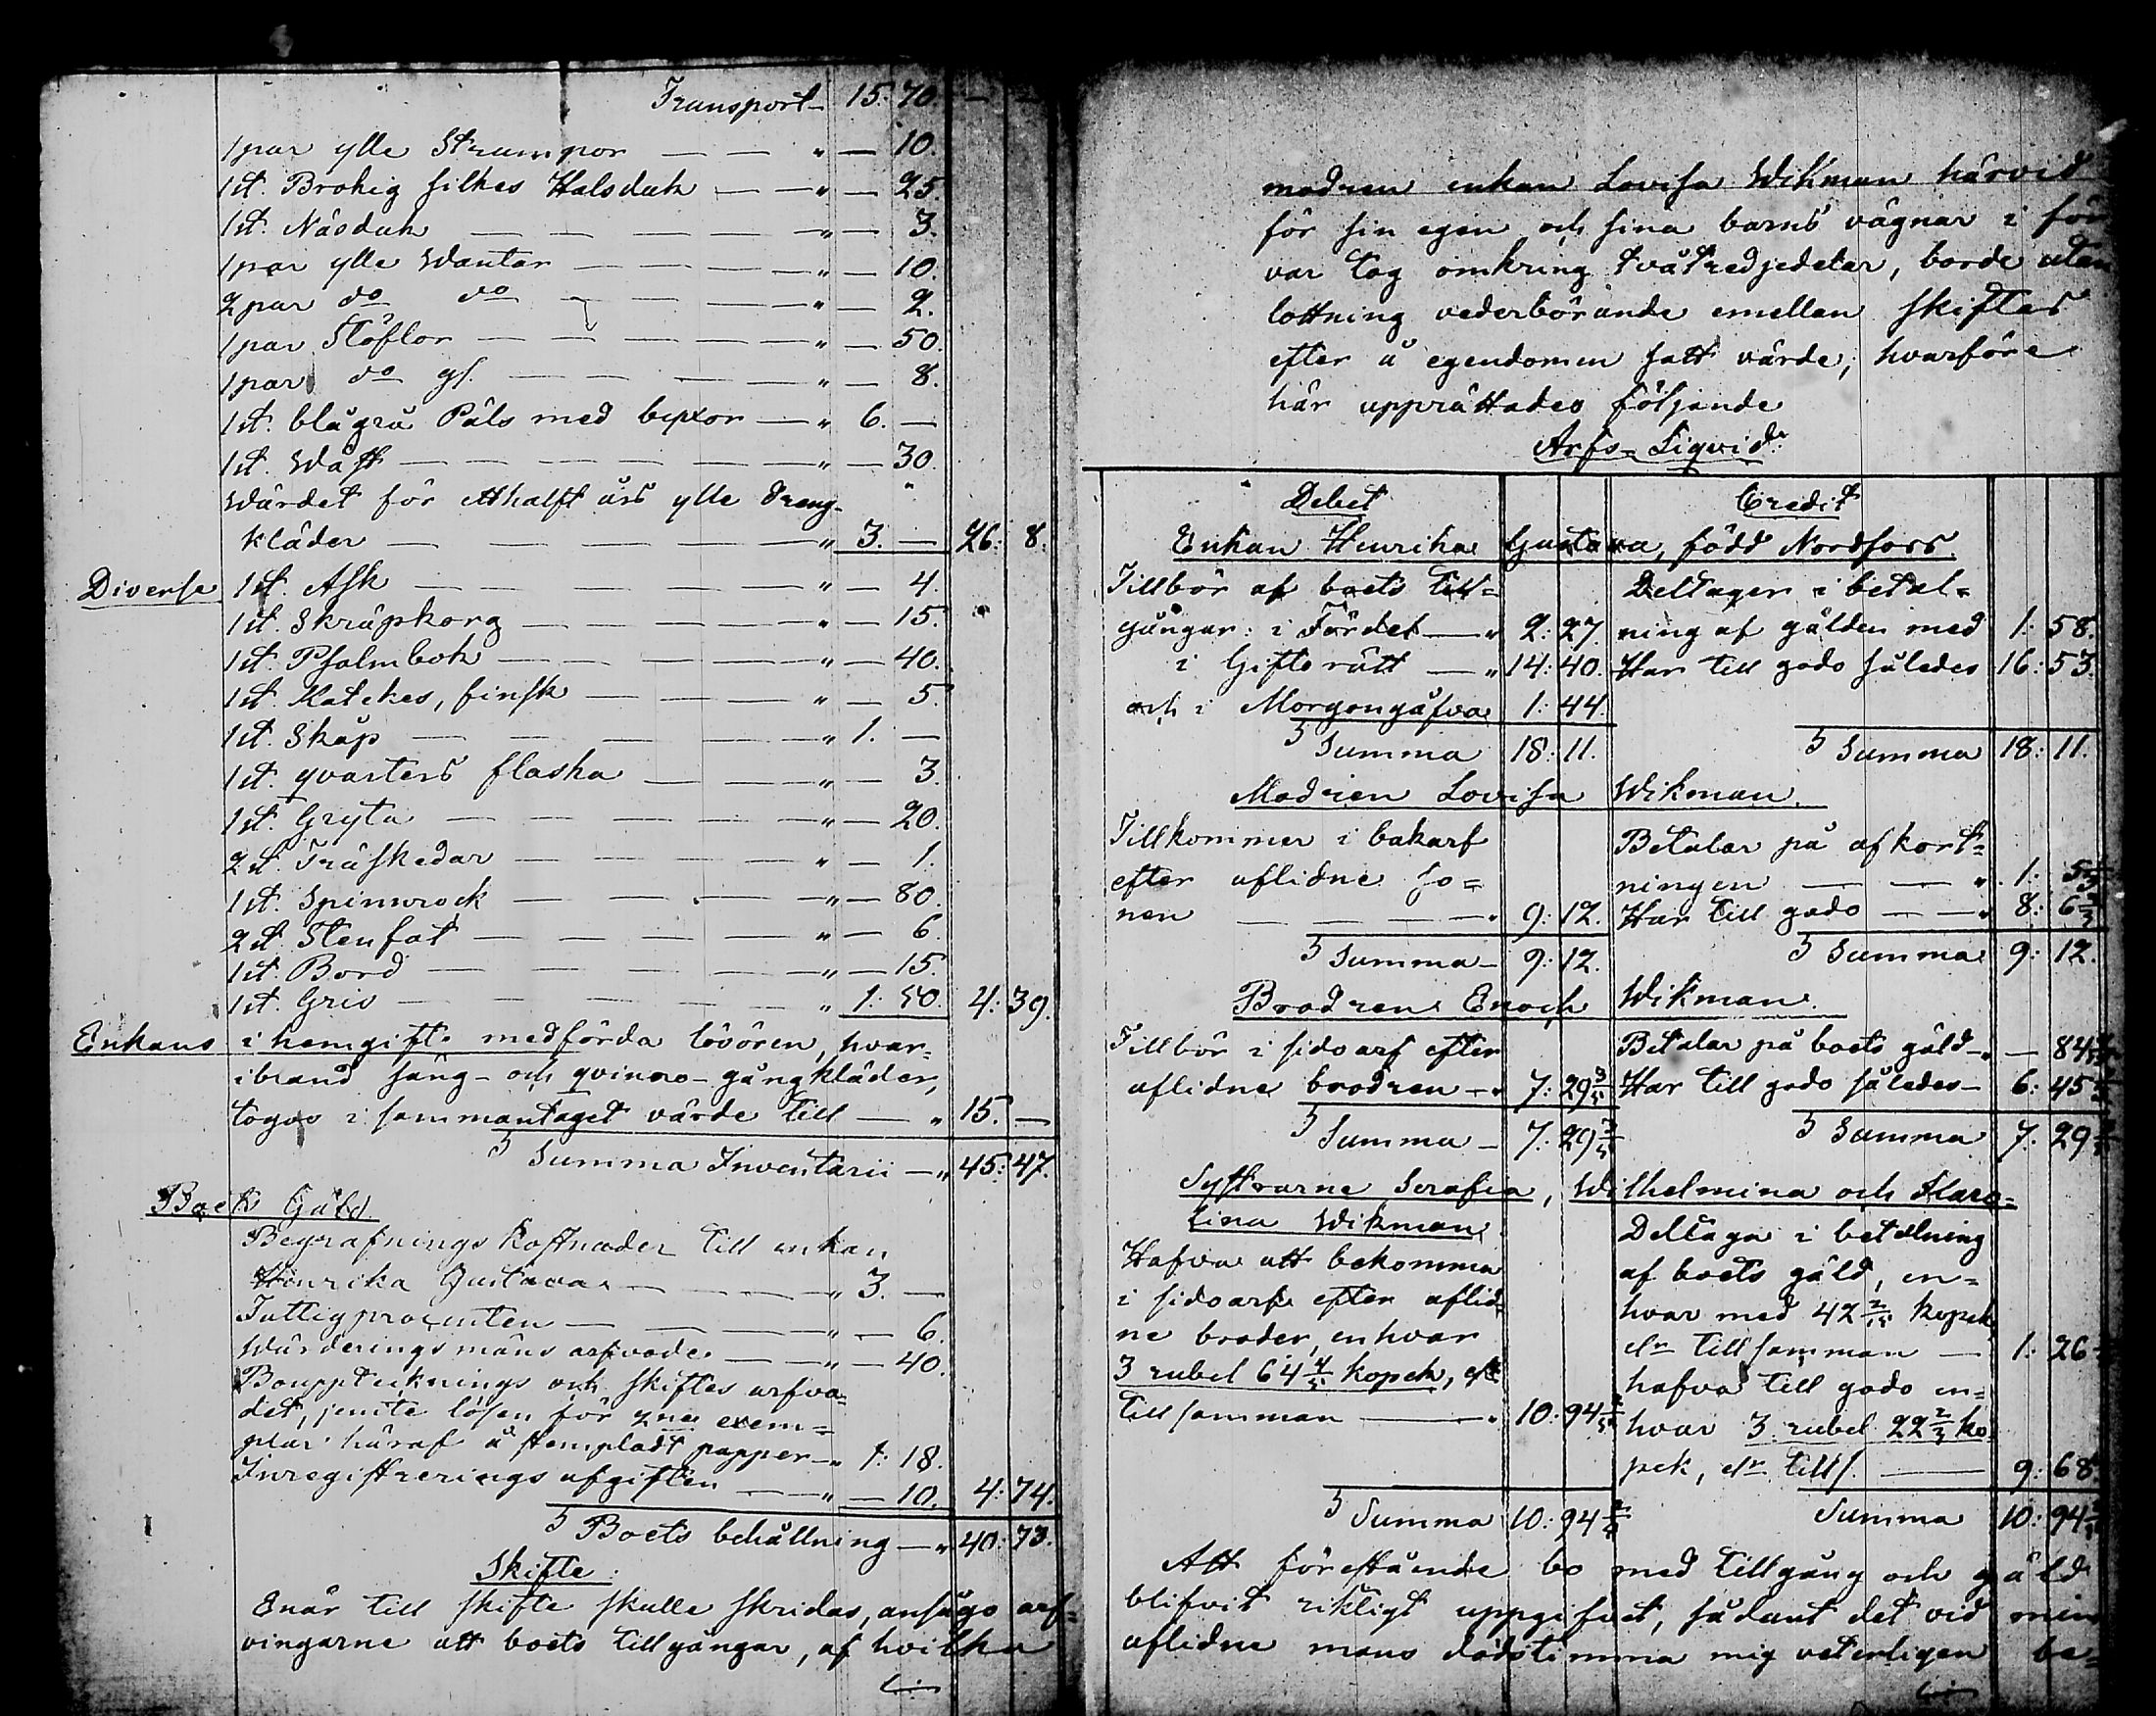 Transport 15. 70. — —
1 par ylle Strumpor — — " — 10.
1 st. Brokig silkes Halsduk — — " — 25.
1 st. Näsduk — — — — " — 3.
1 par ylle Wantar — — — — " — 10.
2 par do do — — — — " — 2.
1 par Stöflor — — — — — " — 50.
1 par do gl. — — — — " — 8.
1 st. blågrå Päls med byxor — " 6. —
1 st. Wäst — — — — — " — 30.
Wärdet för ett halft års ylle dreng-
kläder — — — — — " 3. — 26: 8.
Diverse 1 st. Ask — — — — — " — 4.
1 st. Skräpkorg — — — — " — 15.
1 st. Psalmbok — — — — " — 40.
1 st. Katekes, finsk — — — " — 5.
1 st. Skåp — — — — — " 1. —
1 st. qvarters flaska — — — " — 3.
1 st. Gryta — — — — — " — 20.
2 st. Träskedar — — — — " — 1.
1 st. Spinnrock — — — — " — 80.
2 st. Stenfat — — — — " — 6.
1 st. Bord — — — — — " — 15.
1 st. Gris — — — — — " 1: 50. 4: 39.
Enkans i hemgift medförda lösören, hvar-
ibland säng- och qvinno-gångkläder,
togos i sammantaget värde till — " 15. —
Summa Inventarii — " 45: 47.
Boets Gäld.
Begrafnings kostnader till enkan
Henrika Gustava — — — " 3. —
Fattigprocenten — — — " — 6.
Wärderingsmäns arfvode — — " — 40.
Boupptecknings och skiftes arfvo-
det, jemte lösen för 2ne exem-
plar häraf å stempladt papper — " 1: 18.
Inregistrerings afgiften — — " — 10. 4: 74.
Boets behållning — " 40: 73.
Skifte.
Enär till skifte skulle skridas, ansågo arf-
vingarne att boets tillgångar, af hvilka
modren enkan Lovisa Wikman härvid
för sin egen och sina barns vägnar i för
var tog omkring två tredjedelar, borde utan
lottning vederbörande emellan skiftas
efter å egendomen satt värde; hvarföre
här upprättades följande
Arfs-Liqvid.
Debet Credit
Enkan Henrika Gustava, född Nordfors.
Tillbör af boets till- Deltager i betal-
gångar: i Fördel — " 2: 27. ning af gälden med 1: 58.
i Giftorätt — " 14: 40. Har till godo således 16: 53.
och i Morgongåfva 1: 44.
Summa 18: 11. Summa 18: 11.
Modren Lovisa Wikman.
Tillkommer i bakarf Betalar på afkort-
efter aflidne so- ningen — — " 1: 5 1/3
nen — — — — " 9: 12. Har till godo — — " 8: 6 2/3
Summa — 9: 12. Summa 9: 12.
Brodren Enoch Wikman.
Tillbör i sidoarf efter Betalar på boets gäld — " — 84
aflidne brodren — " 7: 29 3/5 Har till godo således — 6: 45
Summa — 7: 29 3/5 Summa 7: 29
Systrarne Serafia, Wilhelmina och Karo-
lina Wikman.
Deltaga i betalning
Hafva att bekomma af boets gäld, en-
i sidoarf efter aflid- hvar med 42 2/15 kopek,
ne broder, enhvar elr tillsamman — 1: 26
3 rubel 64 4/5 kopek, elr hafva till godo en-
tillsamman — " 10: 94 2/5 hvar 3 rubel 22 2/3 ko-
pek, elr tills. — 9: 68
Summa 10: 94 2/5 Summa 10: 94
Att förestående bo med tillgång och gäld
blifvit riktigt uppgifvet, sådant det vid min
aflidne mans dödstimma mig veterligen be-